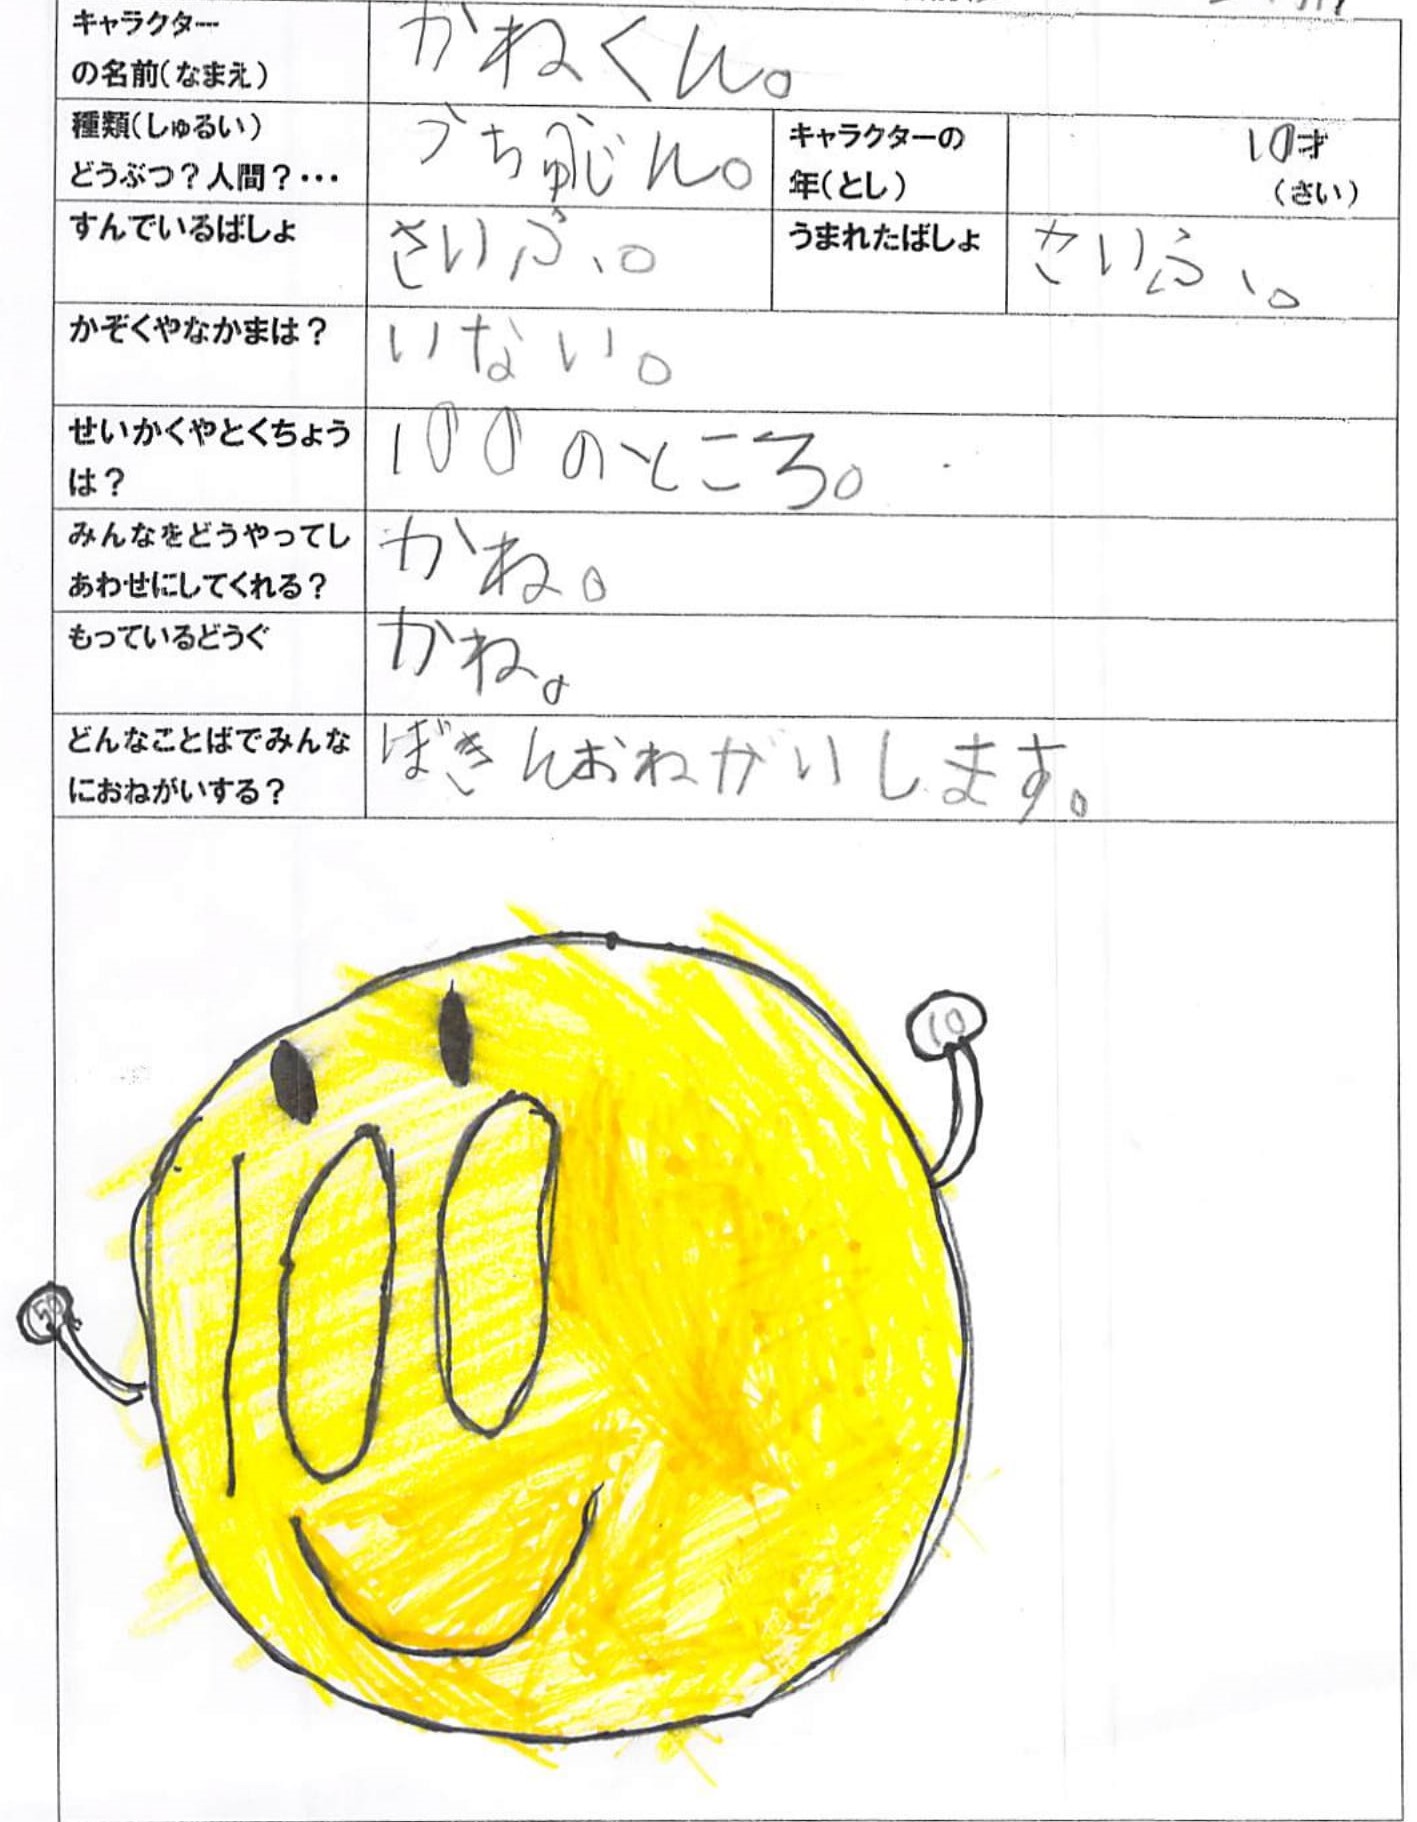 キャラクター
の名前(なまえ)
かねくん。
種類(しゅるい)
どうぶつ?人間?・・・
うちゅうじん。
キャラクターの
年(とし)
10才
(さい)
すんでいるばしょ
さいふ、。
うまれたばしょ
さいふ、。
かぞくやなかまは?
いない。
せいかくやとくちょう
は?
100のところ。
みんなをどうやってし
あわせにしてくれる?
かね。
もっているどうぐ
かね。
どんなことばでみんな
におねがいする?
ぼきんおねがいします。
10
100
50